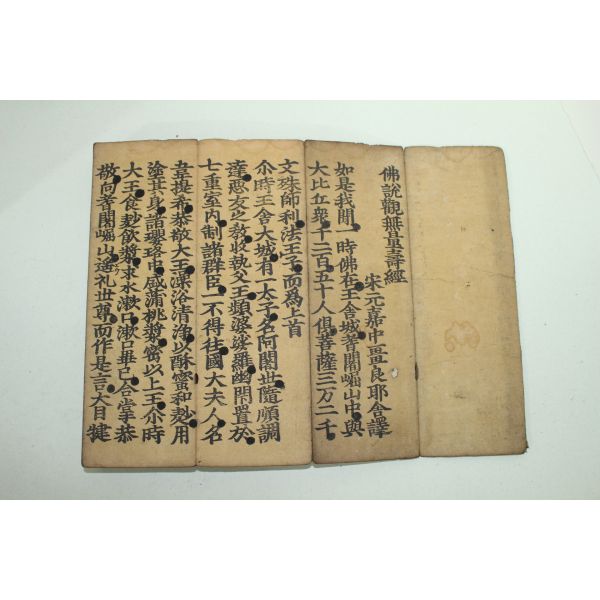 佛說觀無量壽經
宋元嘉中畺良耶舍譯
如是我聞一時佛在王舍城耆闍崛山中與
大比丘衆千二百五十人俱菩薩三万二千
文殊師利法王子而爲上首
尒時王舍大城有一太子名阿闍世隨順調
達惡友之敎收執父王頻婆娑羅幽閇置於
七重室内制諸群臣一不得往國大夫人名
韋提希恭敬大王澡浴清淨以酥蜜和麨用
塗其身諸瓔珞中盛蒲桃漿密以上王尒時
大王食麨飮漿求水漱口漱口畢已合掌恭
敬向耆闍崛山遥礼世尊而作是言大目犍